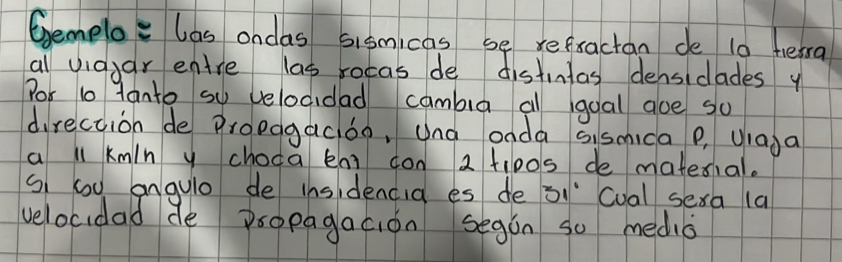 Ejemplo = Las ondas sismicas se refractan de la tierra
al viajar entre las rocas de distintas densidades y
Por lo tanto su velocidad cambia al igual que su
dirección de Propagación, Una onda sismica P, viaja
a 11 Km/h y choca con 2 tipos de material.
Si su angulo de insidencia es de 31° Cual sera la
velocidad de propagación según su medio